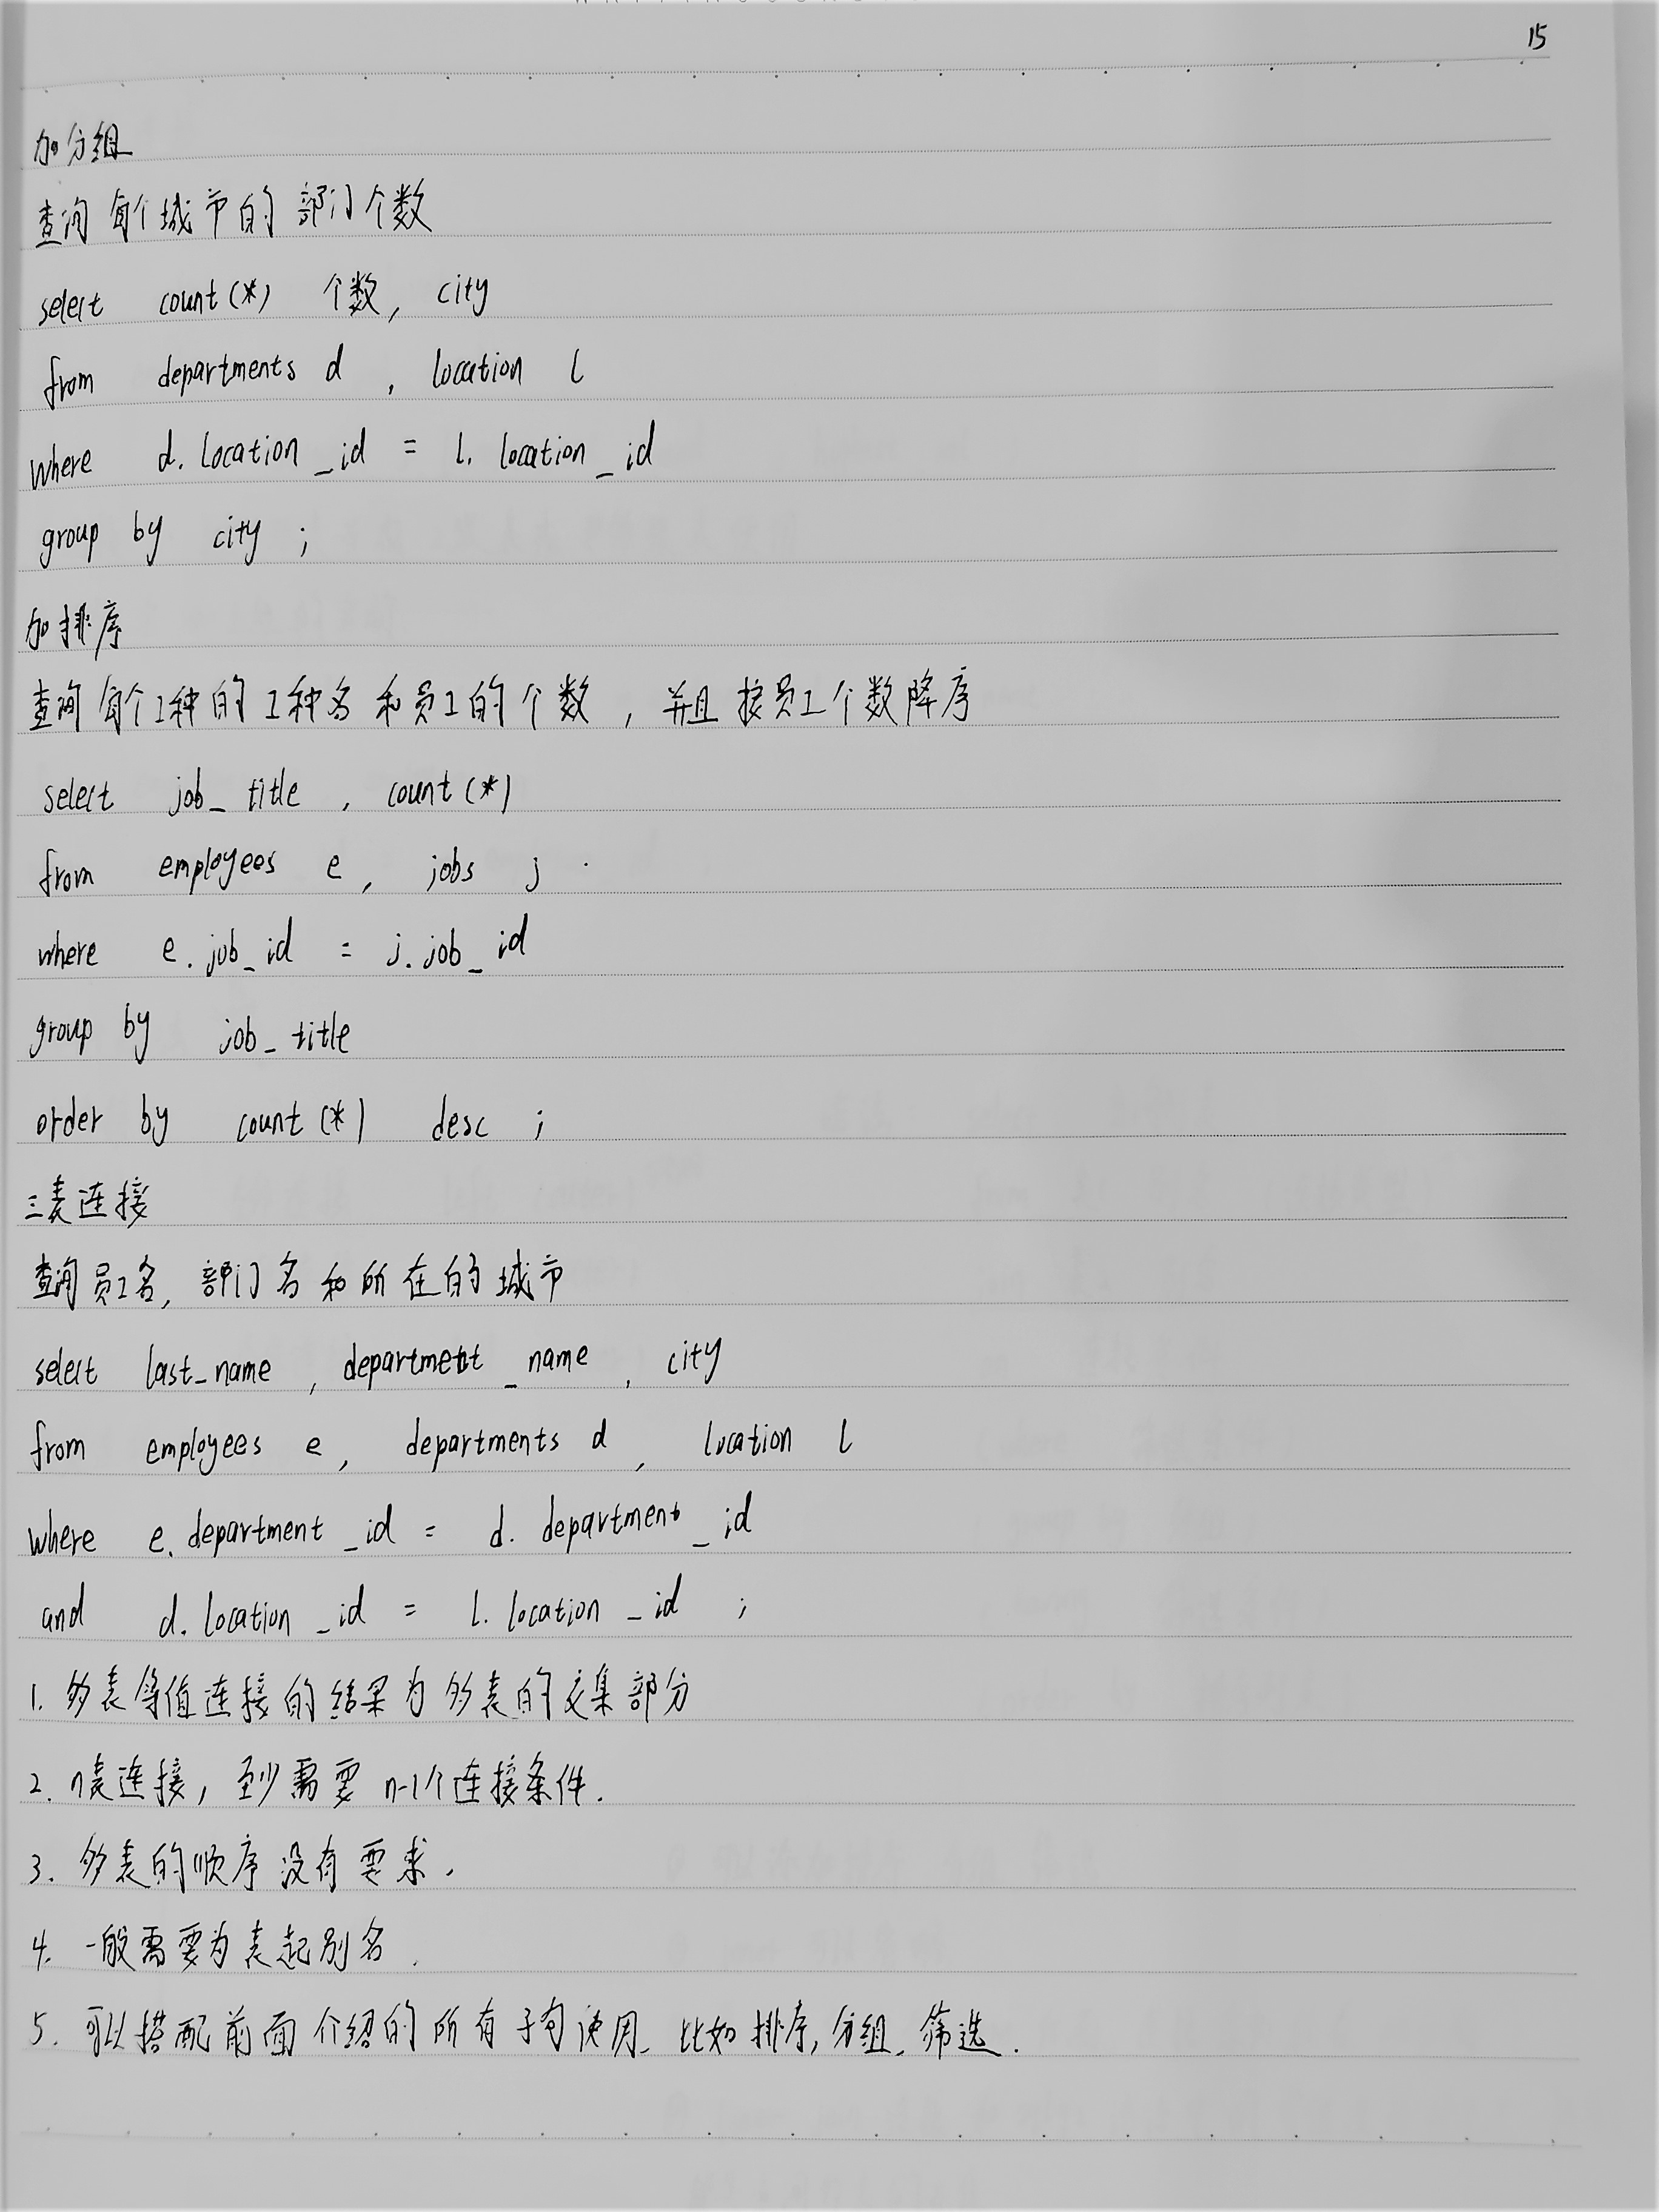 15
加分组
查询每个城市的部门个数
select count(*) 个数, city
from departments d , location l
where d.location_id = l.location_id
group by city ;
加排序
查询每个工种的工种名和员工的个数, 并且按员工个数降序
select job_title , count(*)
from employees e, jobs j
where e.job_id = j.job_id
group by job_title
order by count(*) desc ;
三表连接
查询员工名, 部门名和所在的城市
select last_name , department_name , city
from employees e, departments d , location l
where e.department_id = d.department_id
and d.location_id = l.location_id ;
1. 多表等值连接的结果为多表的交集部分
2. n表连接, 至少需要n-1个连接条件.
3. 多表的顺序没有要求.
4. 一般需要为表起别名.
5. 可以搭配前面介绍的所有子句使用, 比如排序, 分组, 筛选.